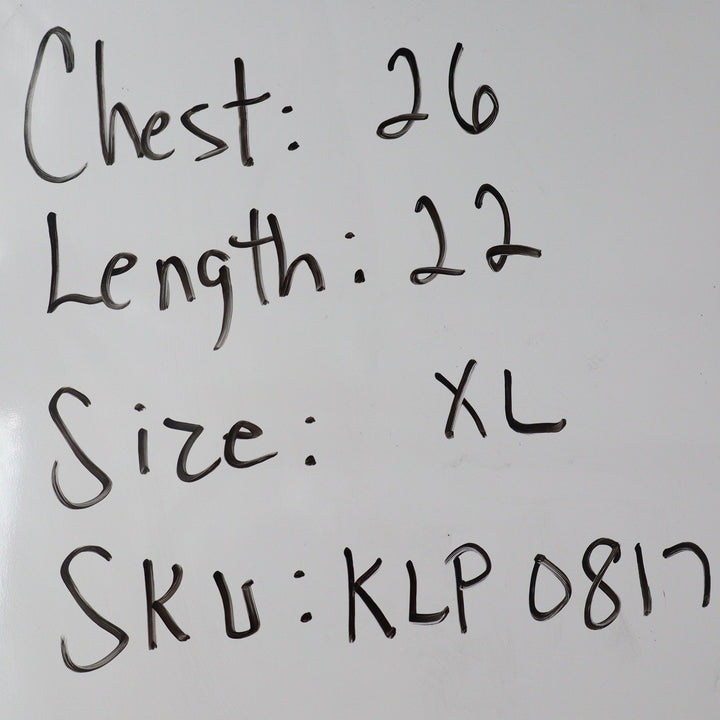 Chest: 26
Length: 22
Size: XL
SKU: KLP 0817